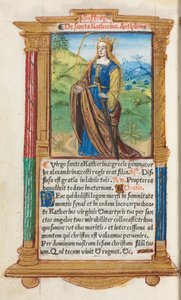 De sancta Katherina. Antiphona
Virgo sancta Katherina: grecie gemma: vr
be alexandrina: costi regis erat filia. V̄. Dif
fusa est gratia in labiis tuis. Rm. Propterea
benedixit te deus in eternum. Oratio.
Deus qui dedisti legem moysi in summitate
montis synai et in eodem loco corpus bea
te Katherine virginis
per sanctos angelos tuos
et intercessione ad
montem qui christus est valeamus pervenire.
Per dominum nostrum iesum christum filiū tuū
um. Qui tecum vivit et regnat. &c.